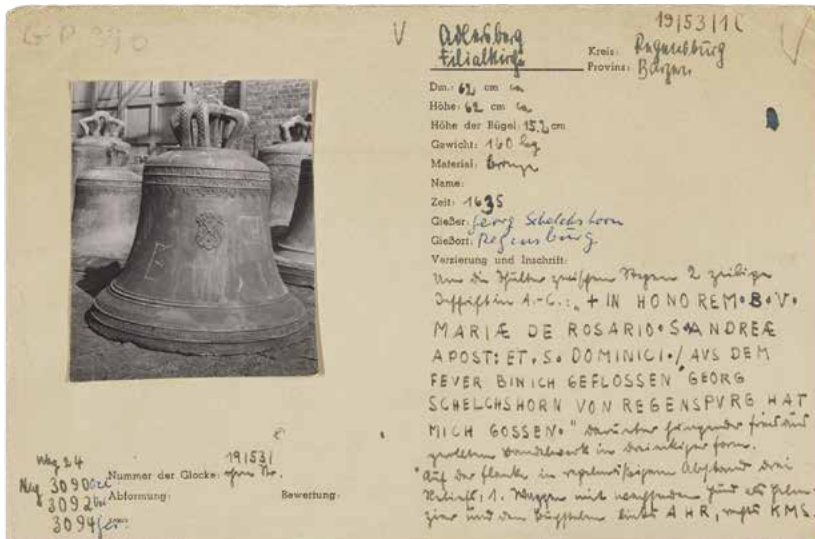 GP 990
V
Adlersberg
Filialkirche
19/53/1 C
Kreis: Regensburg
Provinz: Bayern
V
Dm.: 62 cm ca
Höhe: 62 cm ca
Höhe der Bügel: 15.2 cm
Gewicht: 160 kg
Material: Bronze
Name:
Zeit: 1635
Gießer: Georg Schelchshorn
Gießort: Regensburg
Verzierung und Inschrift:
Um die Schulter zwischen Stegen 2 zeilige
Inschrift in A.-C.: „+ IN HONOREM • B • V •
MARIÆ DE ROSARIO • S • ANDREÆ
APOST: ET • S • DOMINICI • / AVS DEM
FEVER BIN ICH GEFLOSSEN GEORG
SCHELCHSHORN VON REGENSPVRG HAT
MICH GOSSEN •" darunter hängender Fries aus
in dreieckiger Form.
Auf der Flanke in regelmäßigem Abstand drei
Reliefs; 1. Wappen mit wachsendem als Helm-
zier und den Buchstaben links AHR, rechts KMS.
E
Neg 24
Neg 3090
3092
3094
Nummer der Glocke: 19/53/
ohne Nr.
Abformung:
Bewertung: